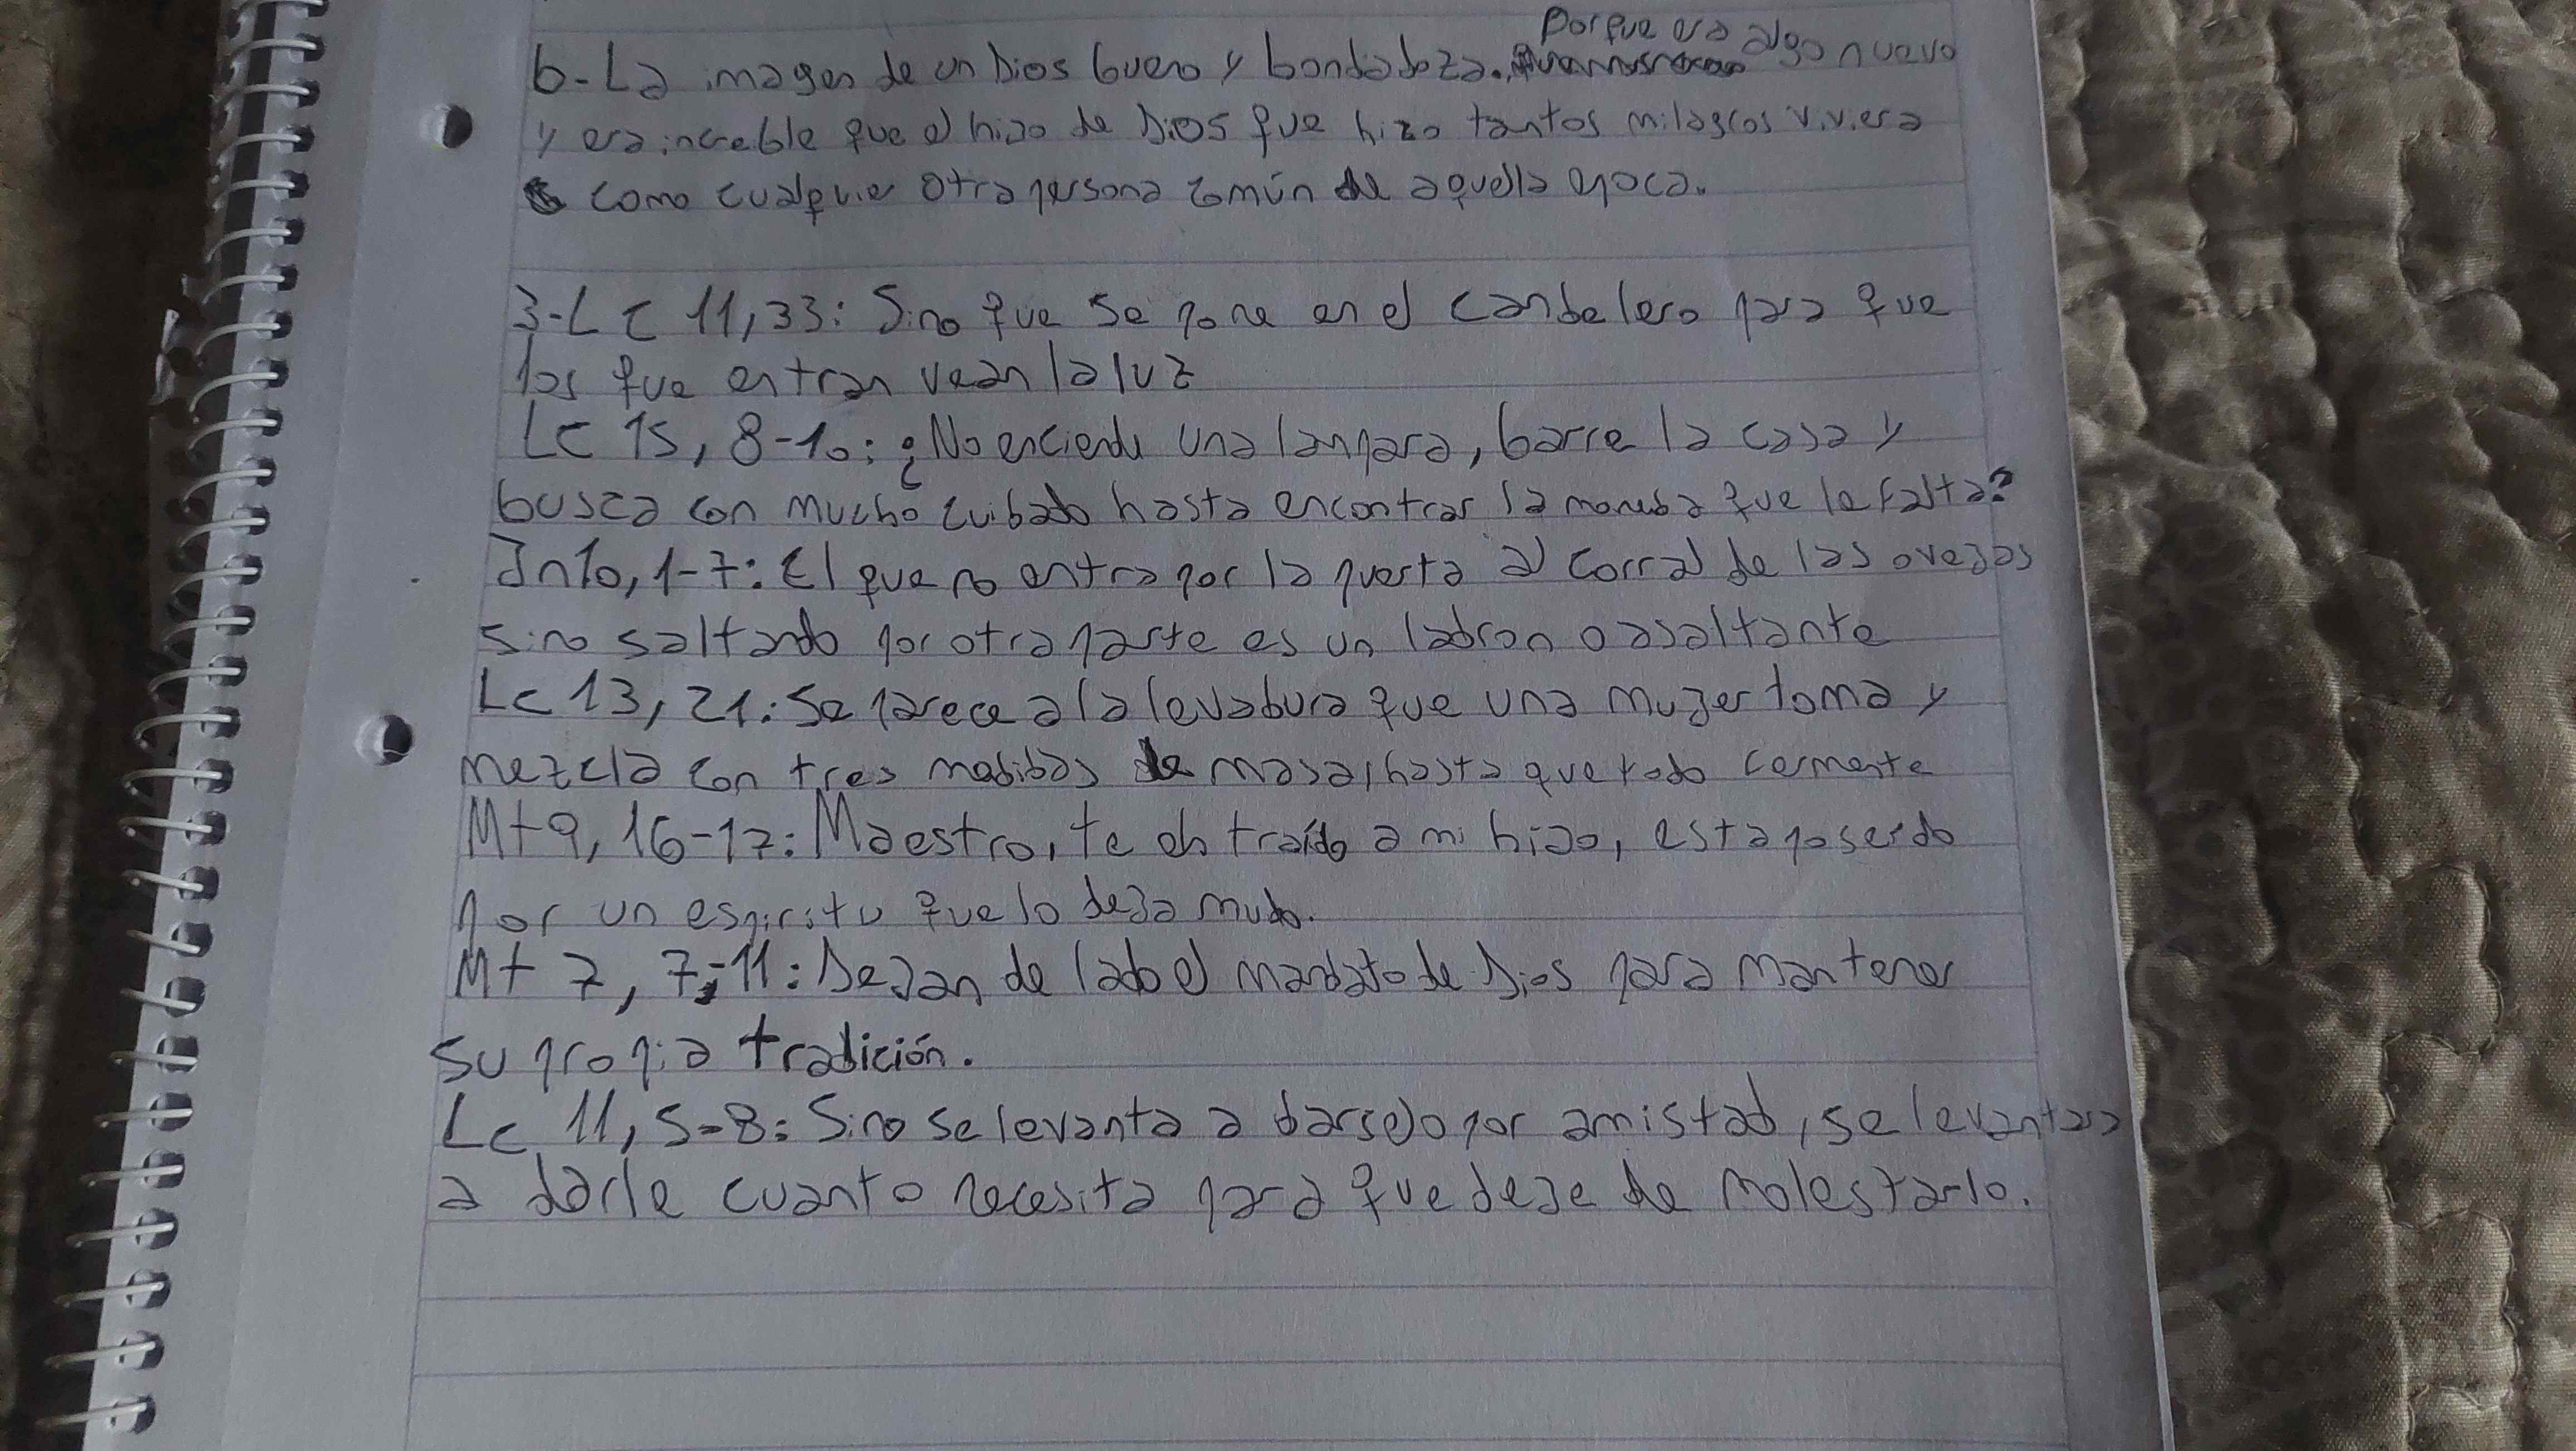 Porque era algo nuevo
b-La imagen de un Dios bueno y bondadoza.
y era increble que el hijo de Dios que hizo tantos milagros viviera
como cualquier otra persona común de aquella epoca.
3-Lc 11,33: Sino que se pone en el candelero para que
los que entran vean la luz
Lc 15, 8-10: ¿No enciende una lanpara, barre la casa y
busca con mucho cuidado hasta encontrar la moneda que le falta?
Jn10, 1-7: El que no entra por la puerta al corral de las ovejas
sino saltando por otra parte es un ladron o asaltante
Lc 13, 21: Se parece a la levadura que una mujer toma y
mezcla con tres medidas de masa, hasta que todo cermente
Mt 9, 16-17: Maestro, te eh traído a mi hijo, esta poseido
por un espiritu que lo deja mudo.
Mt 7, 7-11: Dejan de lado el mandato de Dios para mantener
su propia tradición.
Lc 11, 5-8: Sino se levanta a darselo por amistad, se levantara
a darle cuanto necesita para que deje de molestarlo.